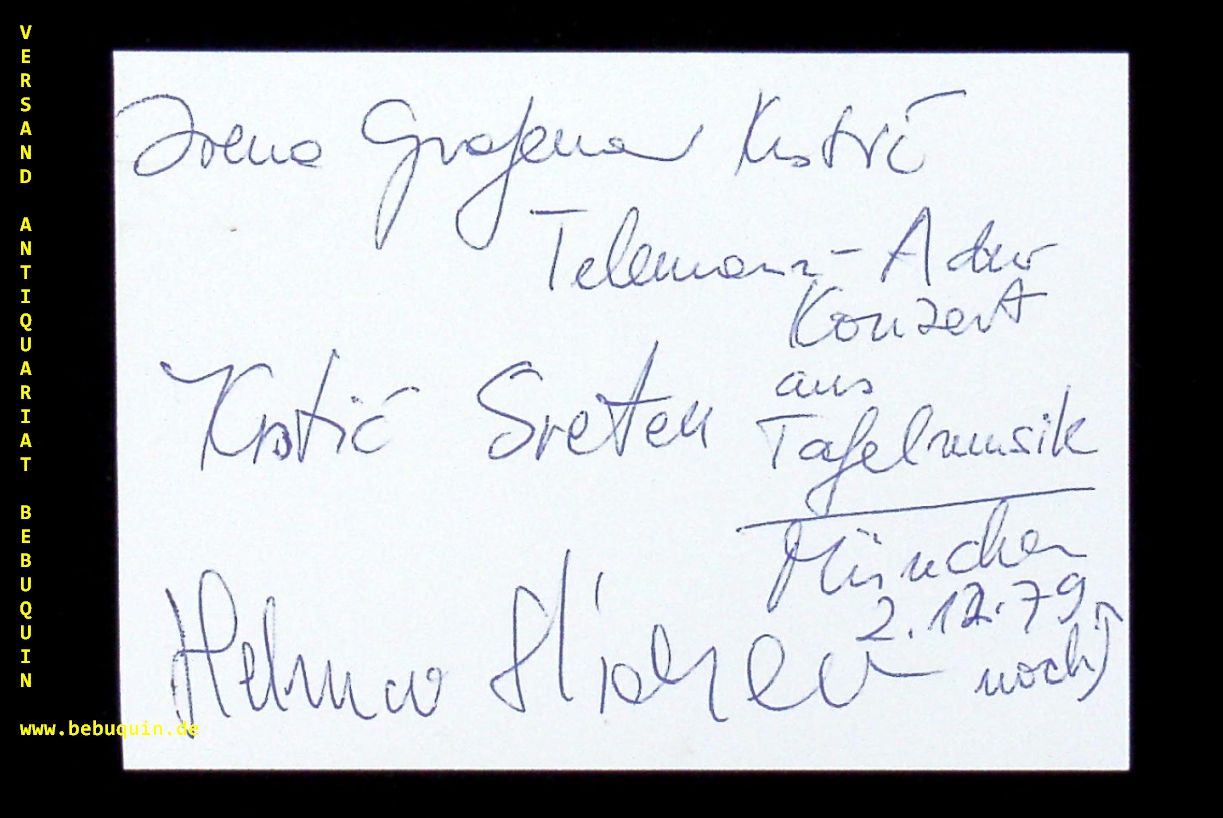 VERSAND ANTIQUARIAT BEBUQUIN
Irena Grafenauer Krstić
Telemann-A dur
Konzert
Krstić Sreten
aus
Tafelmusik
München
2.12.79
noch)
Helmar Stiehler
www.bebuquin.de